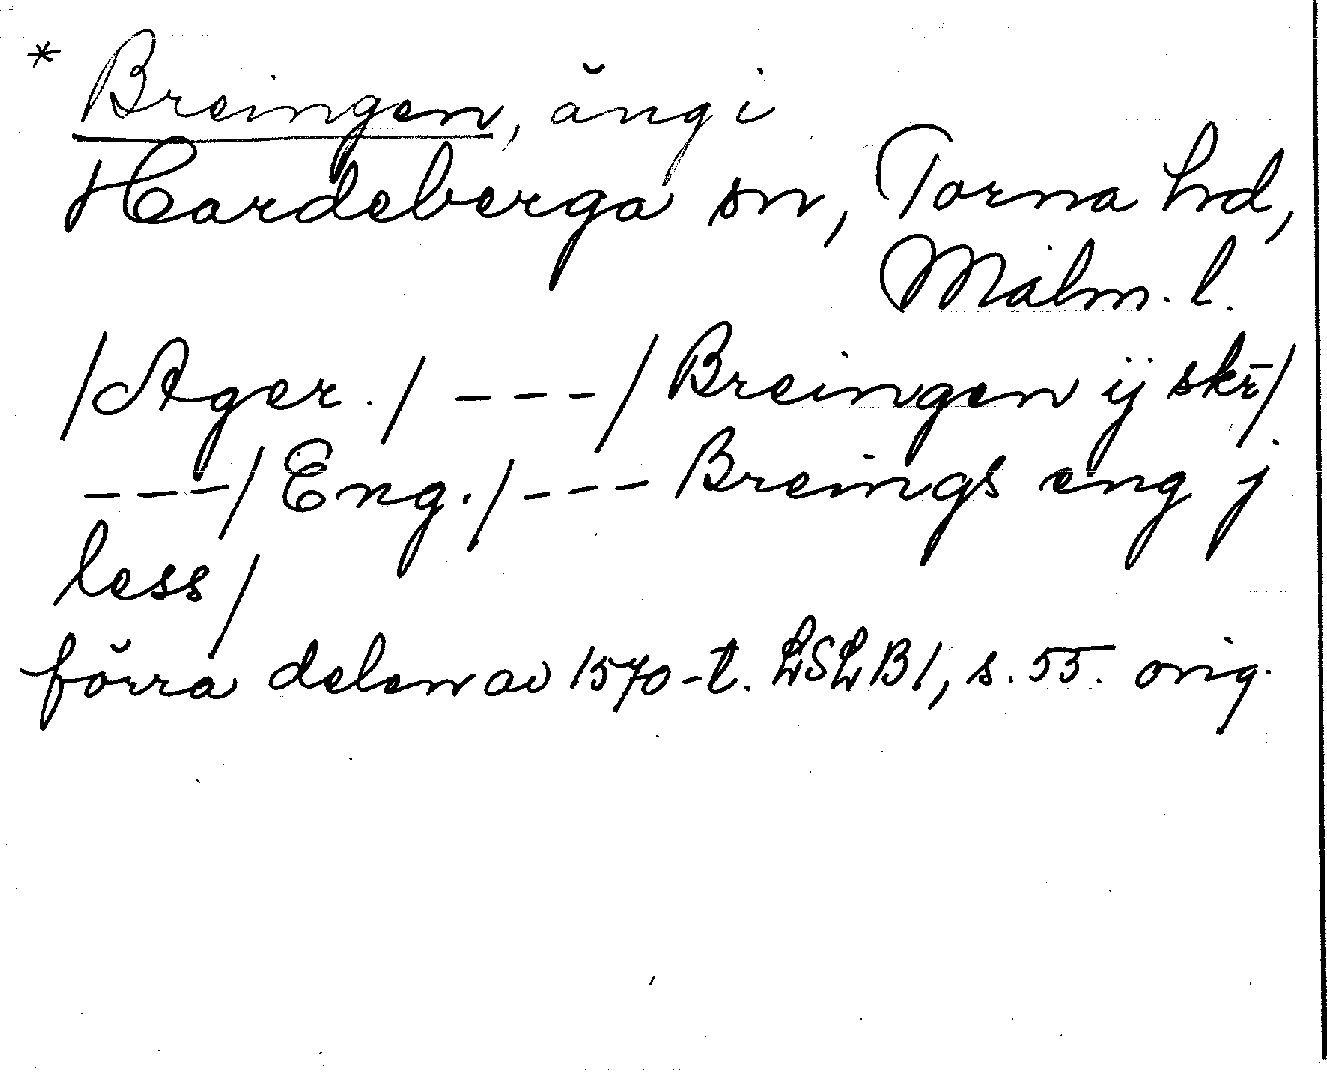 * Breingen, äng i
Hardeberga sn, Torna hd,
Malm. l.
/Ager./ ---/Breingen ij skr/
---/Eng./--- Breings eng j
less/
förra delen av 1570-t. LSLB1, s. 55. orig.